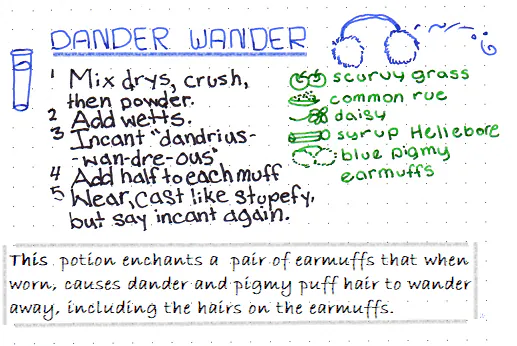 DANDER WANDER
1 Mix drys, crush,
then powder.
2 Add wetts.
3 Incant "dandrius-
-wan-dre-ous"
4 Add half to each muff
5 Wear, cast like stupefy,
but say incant again.
scurvy grass
common rue
daisy
syrup Hellebore
blue pigmy
earmuffs
This potion enchants a pair of earmuffs that when
worn, causes dander and pigmy puff hair to wander
away, including the hairs on the earmuffs.